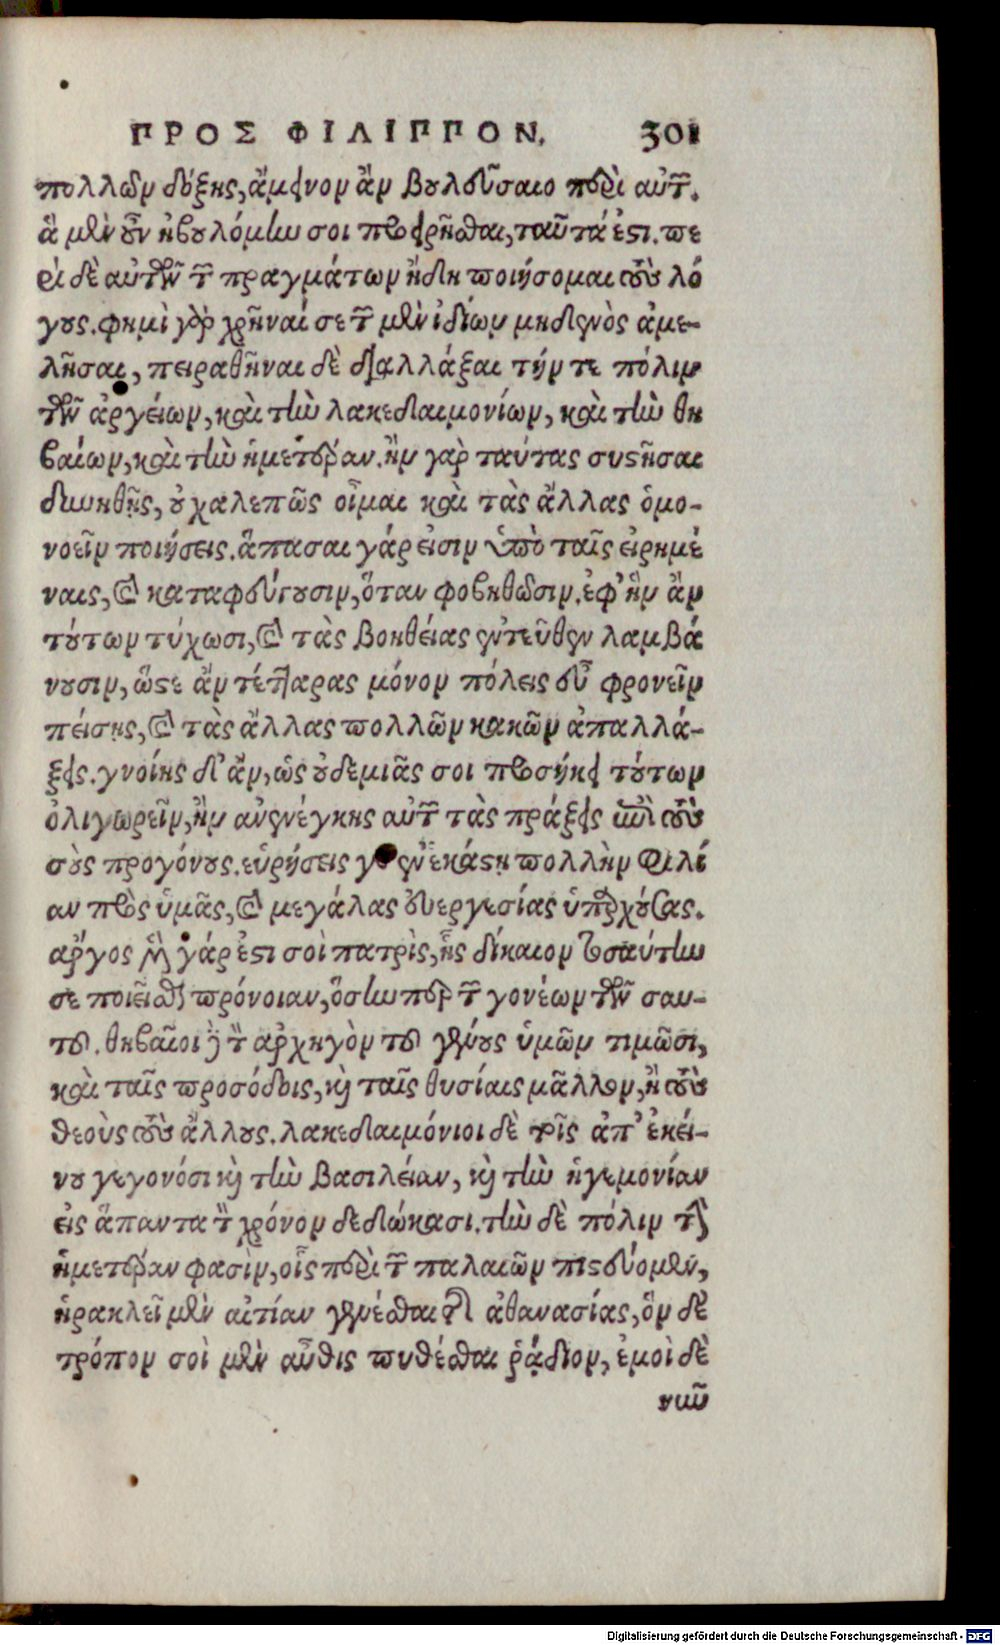 ΠΡΟΣ ΦΙΛΙΠΠΟΝ. 301
πολλῶν δόξης, ἄμεινον ἂν βουλεύσαιο περὶ αὐτῶν.
ἃ μὲν οὖν ἠβουλόμην σοι προειρῆσθαι, ταῦτά ἐστι. πε
ρὶ δὲ αὐτῶν τῶν πραγμάτων ἤδη ποιήσομαι τοὺς λό
γους. φημὶ γὰρ χρῆναί σε τῶν μὲν ἰδίων μηδενὸς ἀμε-
λῆσαι, πειραθῆναι δὲ διαλλάξαι τήν τε πόλιν
τῶν ἀργείων, καὶ τὴν λακεδαιμονίων, καὶ τὴν θη
βαίων, καὶ τὴν ἡμετέραν. ἢν γὰρ ταύτας συστῆσαι
διωηθῇς, οὐ χαλεπῶς οἶμαι καὶ τὰς ἄλλας ὁμο-
νοεῖν ποιήσεις. ἅπασαι γάρ εἰσιν ὑπὸ ταῖς εἰρημέ
ναις, καὶ καταφεύγουσιν, ὅταν φοβηθῶσιν. ἐφ' ἣν ἂν
τούτων τύχωσι, καὶ τὰς βοηθείας ἐντεῦθεν λαμβά
νουσιν, ὥστε ἂν τέτταρας μόνον πόλεις εὖ φρονεῖν
πείσῃς, καὶ τὰς ἄλλας πολλῶν κακῶν ἀπαλλά-
ξεις. γνοίης δ' ἂν, ὡς οὐδεμιᾶς σοι προσήκει τούτων
ὀλιγωρεῖν, ἢν ἀνενέγκῃς αὐτῶν τὰς πράξεις ἐπὶ τοὺς
σοὺς προγόνους. εὑρήσεις γὰρ ἐν ἑκάστῃ πολλὴν φιλί
αν πρὸς ὑμᾶς, καὶ μεγάλας εὐεργεσίας ὑπαρχούσας.
αργος μὲν γάρ ἐστι σοὶ πατρὶς, ἧς δίκαιον τοσαύτην
σε ποιεῖσθαι πρόνοιαν, ὅσην περ τῶν γονέων τῶν σαυ-
τοῦ. θηβαῖοι δὲ τὸν ἀρχηγὸν τοῦ γένους ὑμῶν τιμῶσι,
καὶ ταῖς προσόδοις, καὶ ταῖς θυσίαις μᾶλλον, ἢ τοὺς
θεοὺς τοὺς ἄλλους. λακεδαιμόνιοι δὲ τοῖς ἀπ' ἐκεί-
νου γεγονόσι καὶ τὴν βασιλείαν, καὶ τὴν ἡγεμονίαν
εἰς ἅπαντα τὸν χρόνον δεδώκασι. τὴν δὲ πόλιν τὴν
ἡμετέραν φασὶν, οἷς περὶ τῶν παλαιῶν πιστεύομεν,
ἡρακλεῖ μὲν αἰτίαν γενέσθαι τῆς ἀθανασίας, ὃν δὲ
τρόπον σοὶ μὲν αὖθις πυθέσθαι ῥᾴδιον, ἐμοὶ δὲ
νῦν
Digitalisierung gefördert durch die Deutsche Forschungsgemeinschaft - DFG